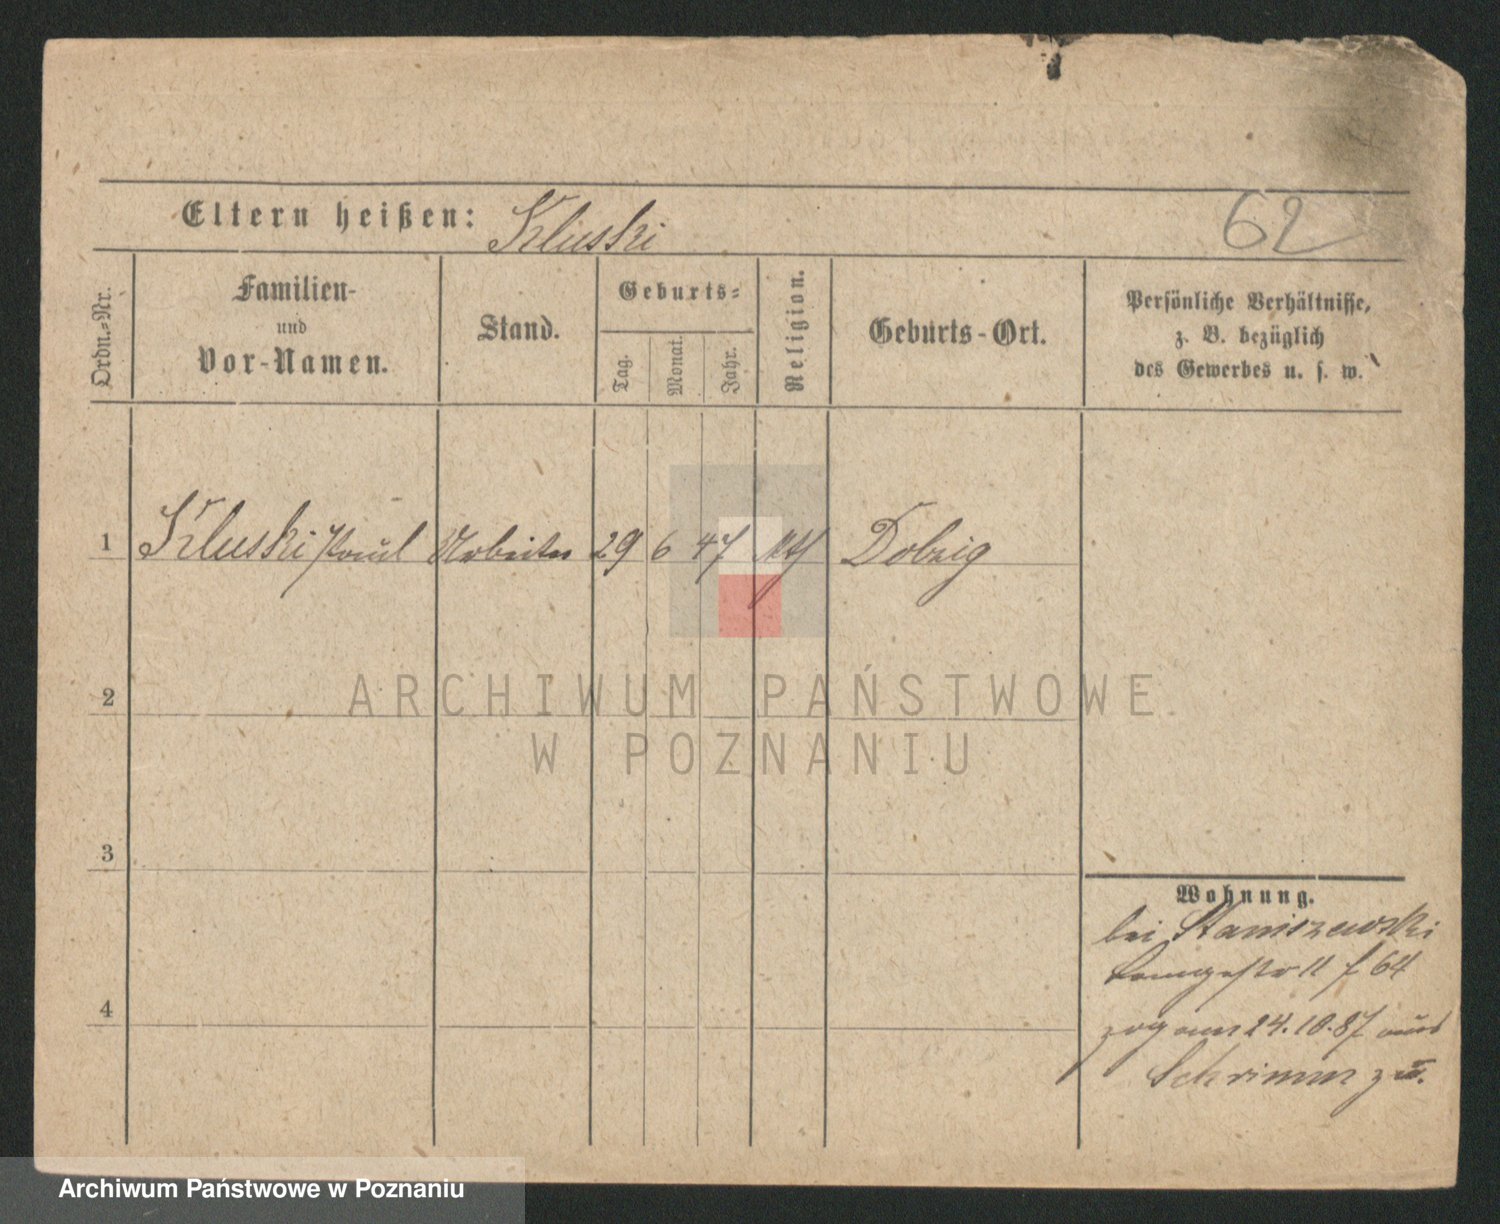 Eltern heißen: Kluski
62
Ordn.=Nr.
Familien-
und
Vor-Namen.
Stand.
Geburts=
Tag.
Monat.
Jahr.
Religion.
Geburts-Ort.
Persönliche Verhältnisse,
z. B. bezüglich
des Gewerbes u. s. w.
1 Kluski Paul Arbeiter 29 6 47 kth Dolzig
2
ARCHIWUM PAŃSTWOWE
W POZNANIU
3
Wohnung.
bei Staniszewski
11 f 64
zog am 24.10.87 aus
Schrimm zu.
4
Archiwum Państwowe w Poznaniu